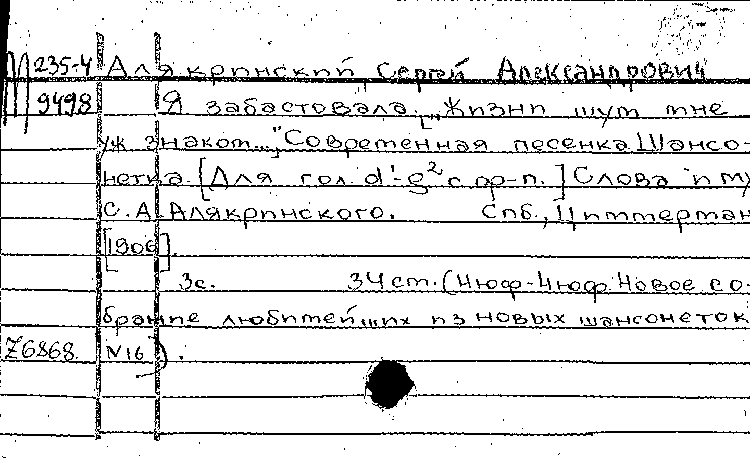 М 235-4 Алякринский, Сергей Александрович
9498 Я забастовала. „Жизни шум мне
уж знаком...," Современная песенка. Шансо-
нетка. [Для гол. d¹-g² с ф-п.] Слова и му
С. А. Алякринского. Спб., Циммерман
[1906].
3с. 34 ст. (Нюф-Нюф. Новое со-
брание любимейших из новых шансонеток
Z6868. N16).